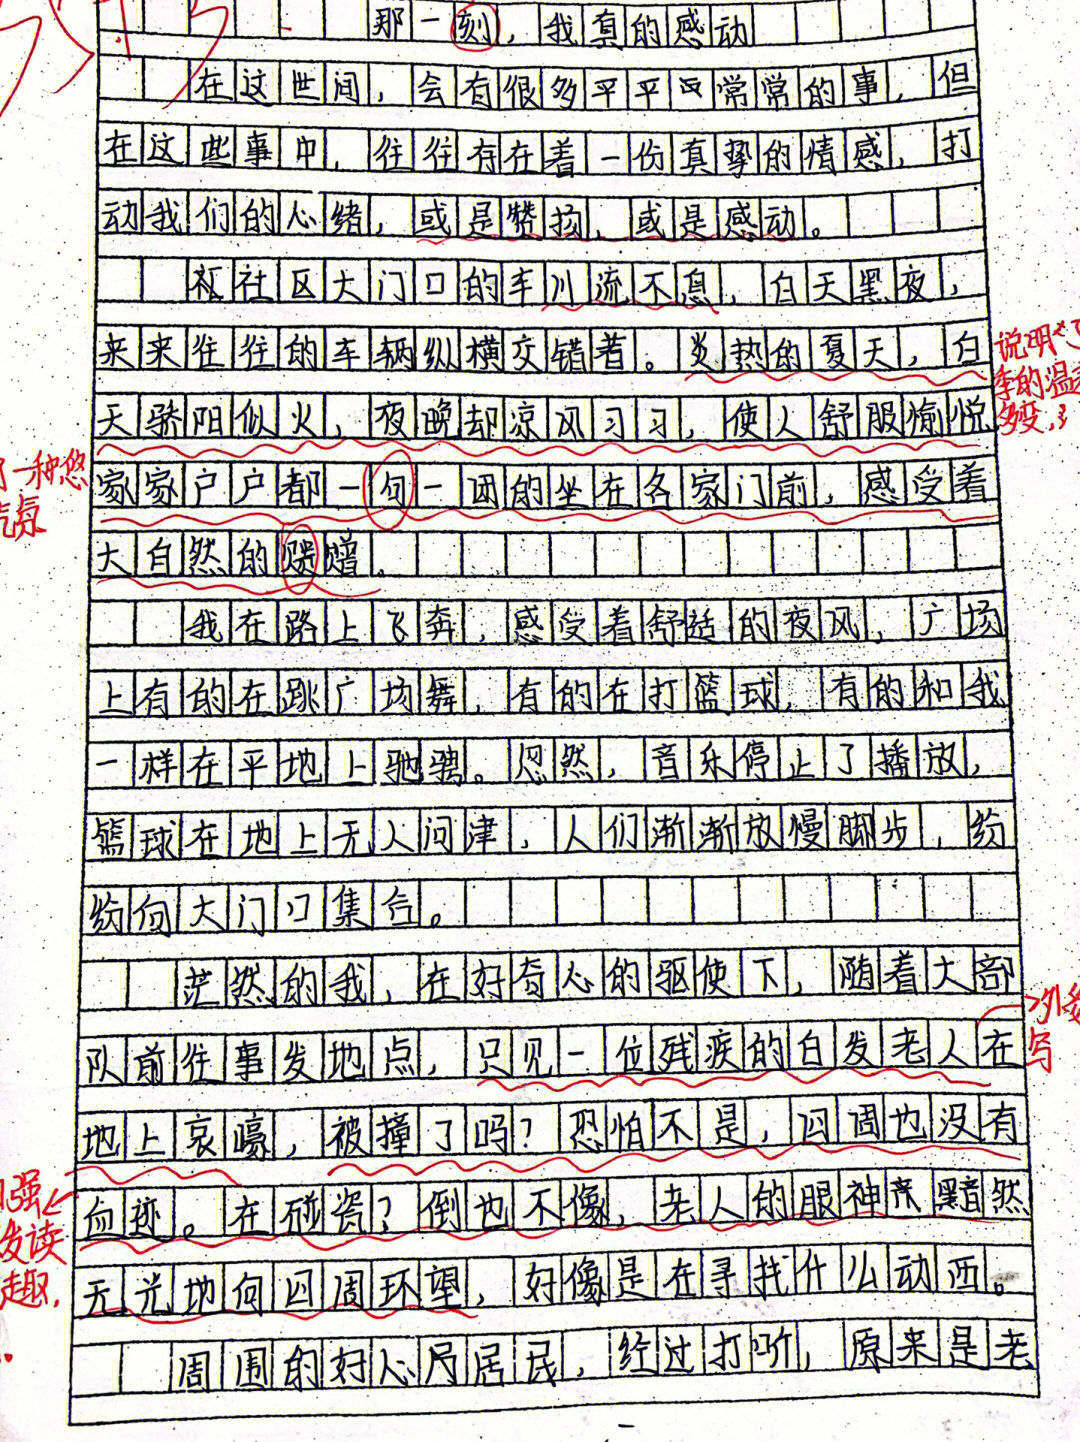 那一刻，我真的感动
在这世间，会有很多平平常常的事，但
在这些事中，往往存在着一份真挚的情感，打
动我们的心绪，或是赞扬，或是感动。
社区大门口的车川流不息，白天黑夜，
来来往往的车辆纵横交错着。炎热的夏天，白
天骄阳似火，夜晚却凉风习习，使人舒服愉悦
家家户户都一句一团的坐在各家门前，感受着
大自然的赠。
我在路上飞奔，感受着舒适的夜风，广场
上有的在跳广场舞，有的在打篮球，有的和我
一样在平地上驰骋。忽然，音乐停止了播放，
篮球在地上无人问津，人们渐渐放慢脚步，纷
纷向大门口集合。
茫然的我，在好奇心的驱使下，随着大部
队前往事发地点，只见一位残疾的白发老人在
地上哀嚎，被撞了吗？恐怕不是，四周也没有
血迹。在碰资？倒也不像，老人的眼神黯然
无光地向四周环望，好像是在寻找什么动西。
周围的好心居民，经过打听，原来是老
说明
季的温
多变，
一种悠
气氛
写
强
发读
趣.